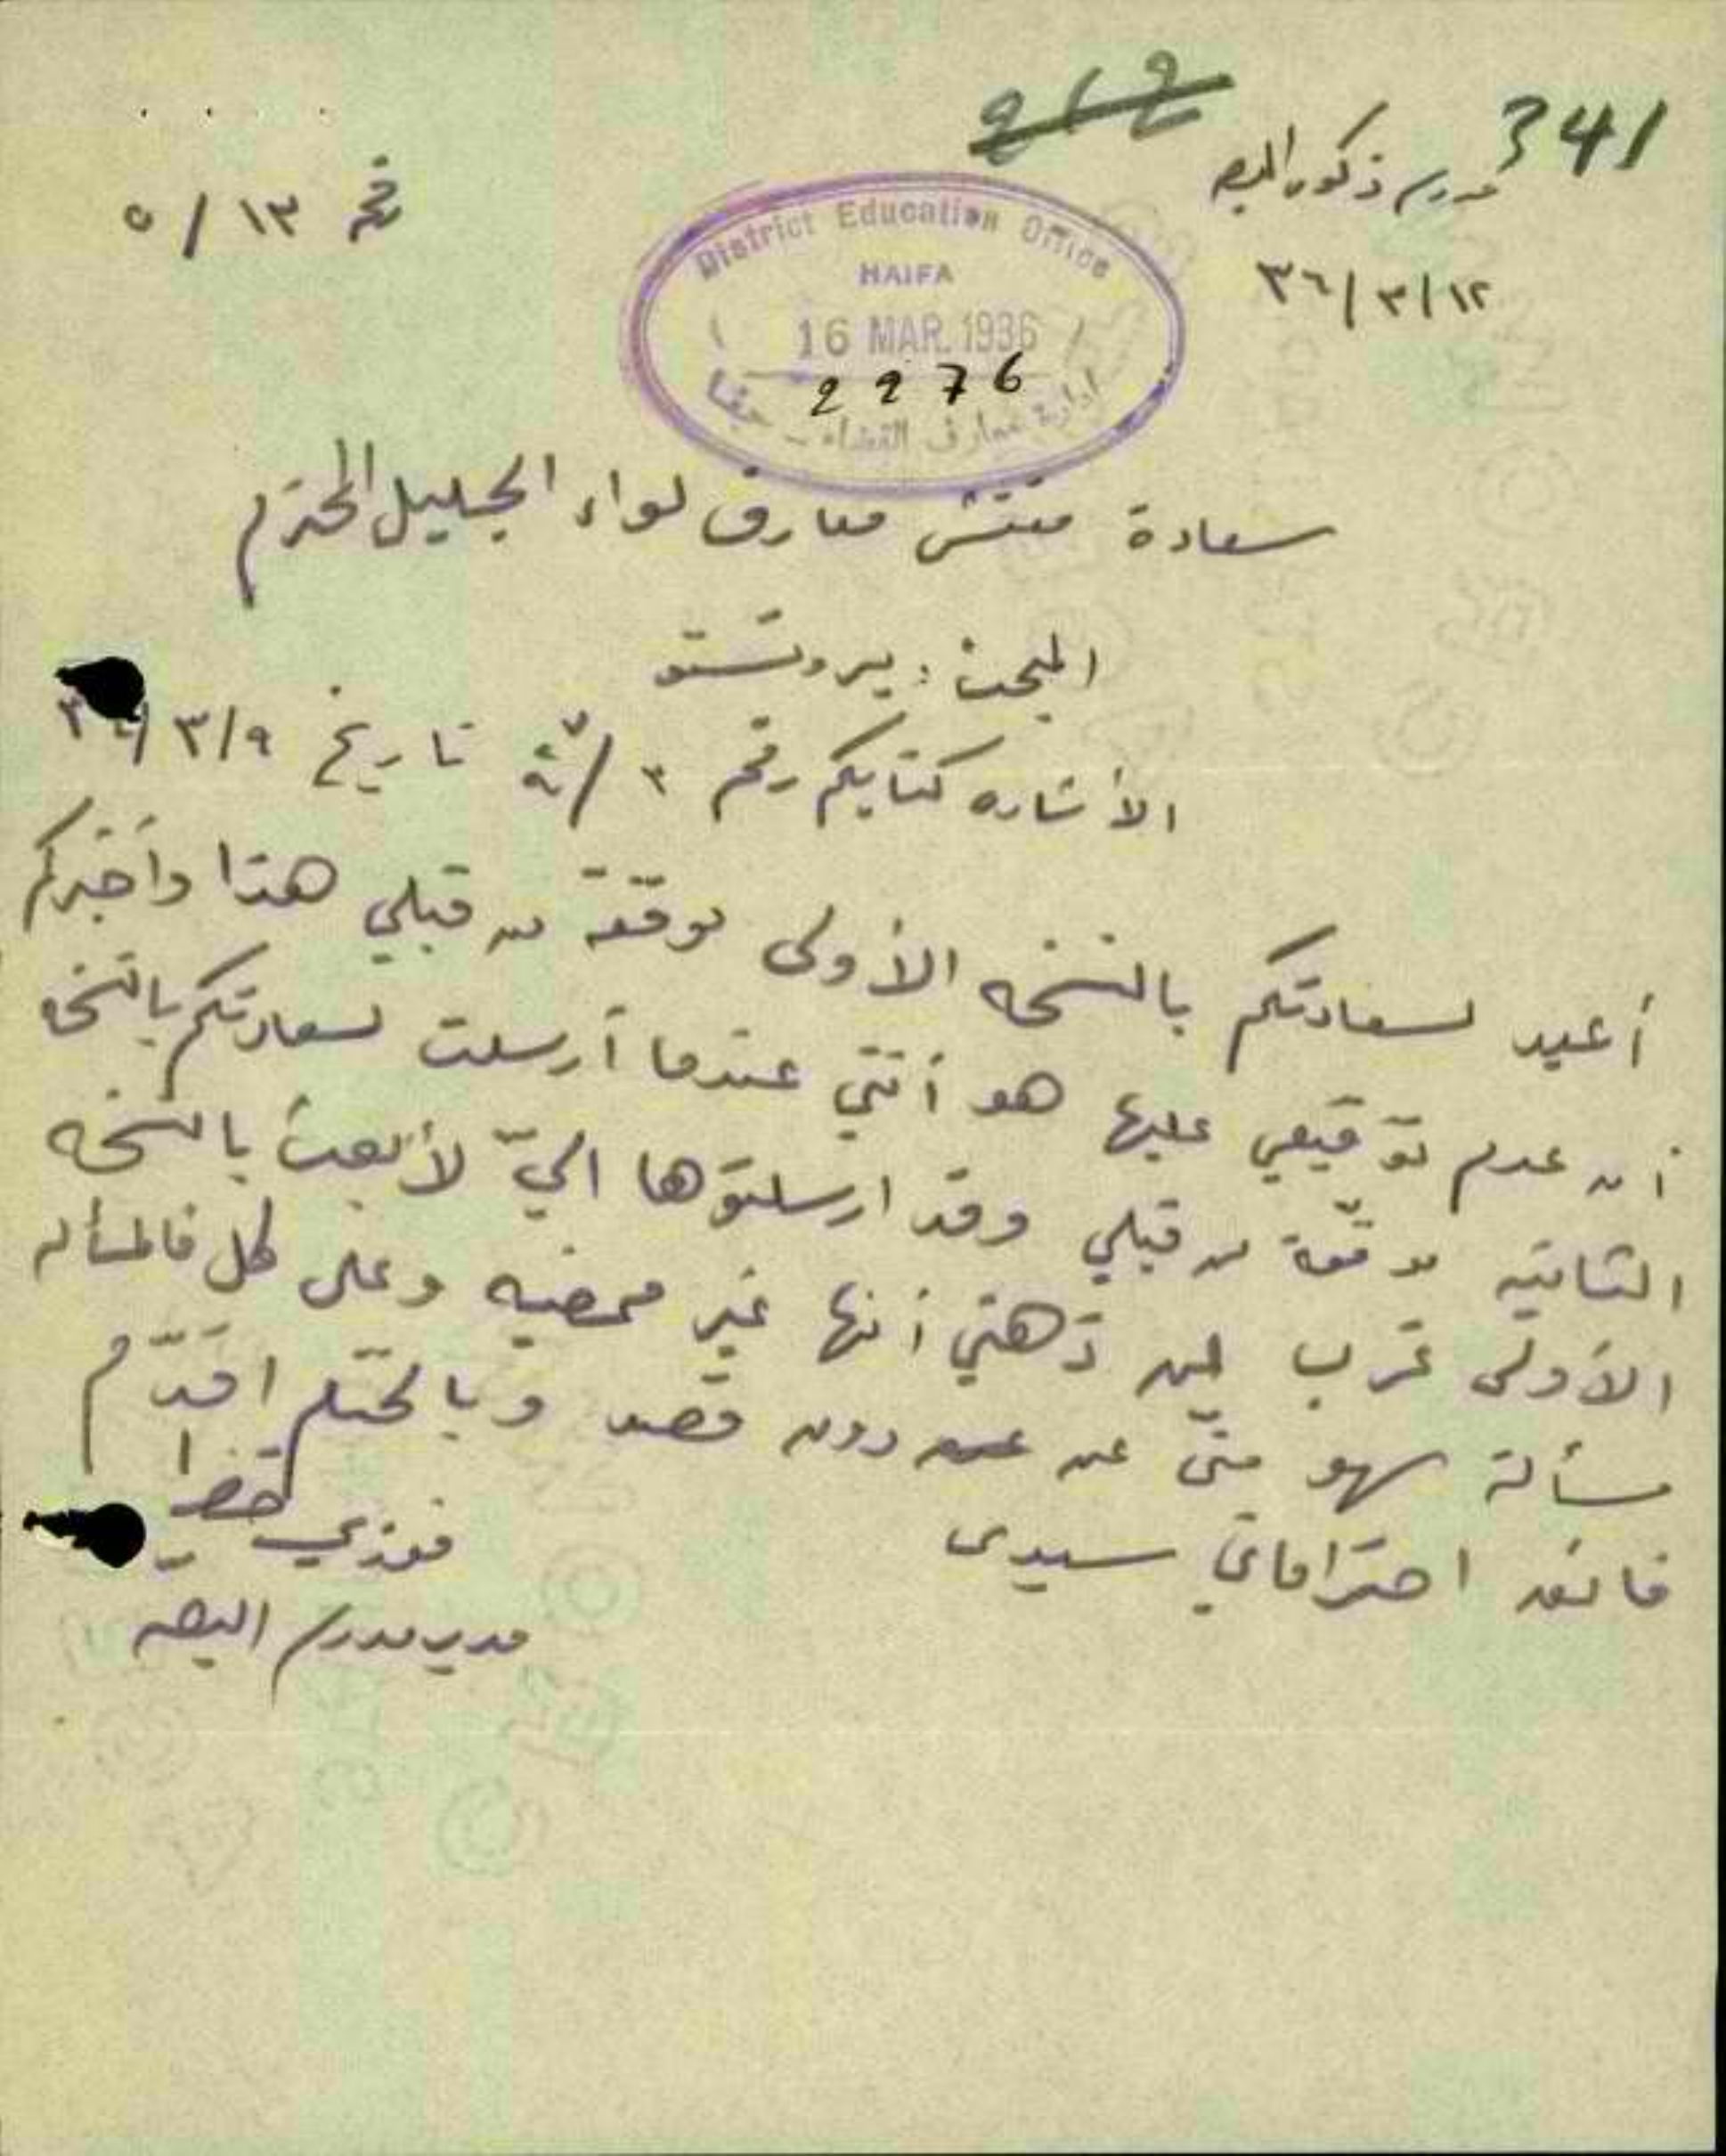 341
مدرسة ذكور البصه
١٢/٣/٣٦
رقم ١٣/٥
District Education Office
HAIFA
16 MAR. 1936
2276
ادارة معارف القضاء - حيفا
سعادة مفتش معارف لواء الجليل المحترم
المبحث: بروتستو
الأشاره كتابكم رقم تاريخ ٣/٩
أعيد لسعادتكم بالنسخه الأولى موقّعة من قبلي هذا وأخبركم
أن عدم توقيعي عليها هو أنني عندما أرسلت لسعادتكم بالنسخه
الثانيه موقّعة من قبلي وقد ارسلتوها اليّ لأبعث بالنسخه
الأولى غرب عن ذهني أنها غير ممضيه وعلى كل فالمسأله
مسألة سهو منّي عن دون قصد وبالختام اقدّم
فائق احتراماتي سيدي
فوزي خضرا
مدير مدرسة البصه